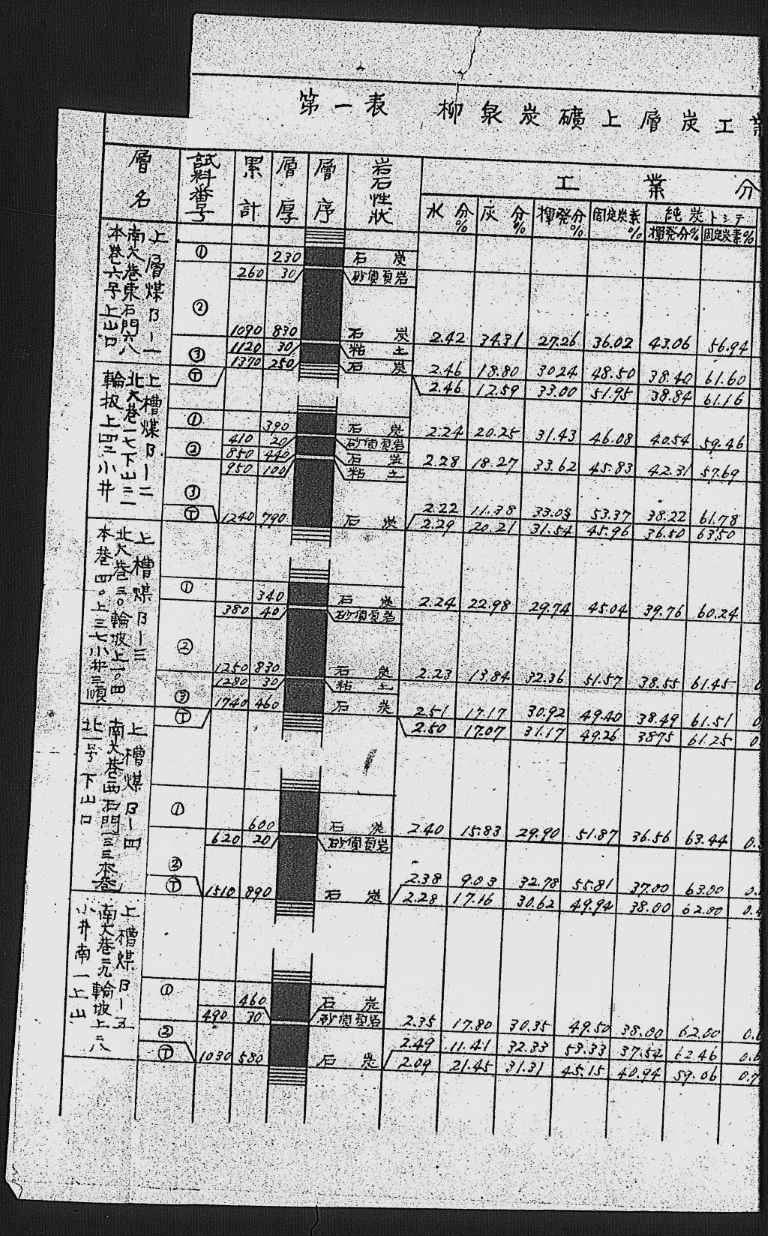 第一表 柳泉炭礦上層炭工業
層名 試料番号 累計 層厚 層序 岩石性状 工業分
水分% 灰分% 揮発分% 固定炭素% 純炭トシテ
揮発分% 固定炭素%
上層煤B一一
南大巷東石門六八
本巷六号上山口
① 230 石炭
260 30 砂質頁岩
② 1090 830 石炭 2.42 34.31 27.26 36.02 43.06 56.94
1120 30 粘土
③ 1370 250 石炭 2.46 18.80 30.24 48.50 38.40 61.60
Ⓣ 2.46 12.59 33.00 51.95 38.84 61.16
上槽煤B一二
北大巷一七下山三一
輪坡上四三小井
① 390 石炭 2.24 20.25 31.43 46.08 40.54 59.46
410 20 砂質頁岩
② 850 440 石炭 2.28 18.27 33.62 45.83 42.31 57.69
950 100 粘土
③ 1240 790 石炭 2.22 11.38 33.03 53.37 38.22 61.78
Ⓣ 2.29 20.21 31.54 45.96 36.50 63.50
上槽煤B一三
北大巷三〇輪坡上一〇四
本巷四〇上三七小井三順
① 340 石炭 2.24 22.98 29.74 45.04 39.76 60.24
380 40 砂質頁岩
② 1250 830 石炭 2.23 13.84 32.36 51.57 38.55 61.45
1280 30 粘土
③ 1740 460 石炭 2.51 17.17 30.92 49.40 38.49 61.51
Ⓣ 2.50 17.07 31.17 49.26 38.75 61.25
上槽煤B一四
南大巷二西石門一三三本巷
北一号下山口
① 600 石炭 2.40 15.83 29.90 51.87 36.56 63.44
620 20 砂質頁岩
② 1510 890 石炭 2.38 9.03 32.78 55.81 37.00 63.00
Ⓣ 2.28 17.16 30.62 49.94 38.00 62.00
上槽煤B一五
南大巷二九輪坡上二八
小井南一上山
① 460 石炭 2.35 17.80 30.35 49.50 38.00 62.00
490 30 砂質頁岩
② 1030 580 石炭 2.49 11.41 32.33 53.33 37.54 62.46
Ⓣ 2.09 21.45 31.31 45.15 40.94 59.06